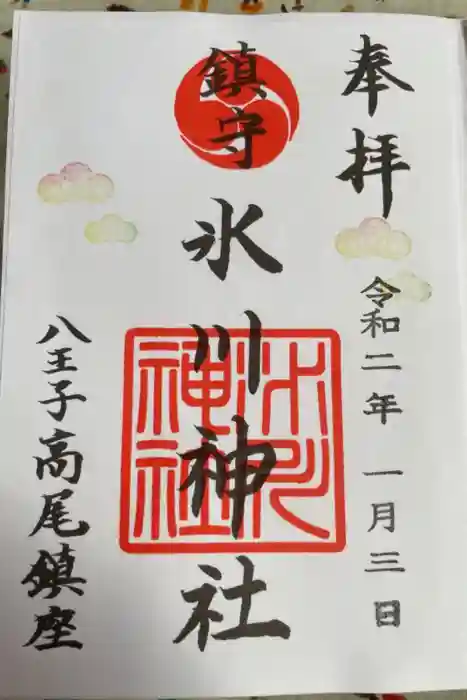 奉拝
令和二年 一月三日
鎮守
氷川神社
氷川神社
八王子高尾鎮座